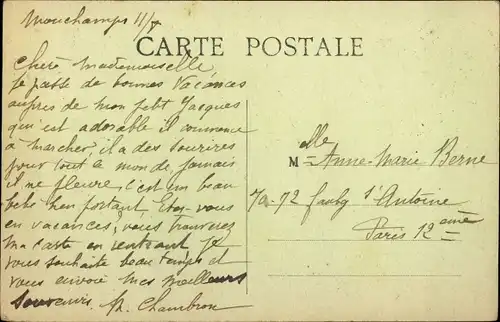 Mouchamps 11/7
CARTE POSTALE
Chère Mademoiselle
Je passe de bonnes vacances
aupres de mon petit Jacques
qui est adorable il commence
à marcher, il a des sourires
pour tout le monde jamais
il ne pleure, c'est un beau
bebe bien portant, Etes-vous
en vacances, vous trouverez
ma carte en rentrant Je
vous souhaite beau temps et
vous envoie mes meilleurs
souvenirs. M. Chambron
Melle Anne-Marie Berne
70-72 faubg St Antoine
Paris 12eme